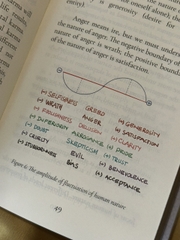 is generosity (desire for
Anger means ire, but we must under
the nature of anger. The negative boundary of
nature of anger is wrath; the positive boundary
of the nature of anger is satisfaction.
(-) SELFISHNESS GREED (+) GENEROSITY
(-) WRATH ANGER (+) SATISFACTION
DELUSION (+) CLARITY
ARROGANCE (+) DROIR
(-) DOUBT SKEPTICISM (+) TRUST
(-) CRUELTY EVIL (+) BENEVOLENCE
(-) STUBBORNNESS BIAS (+) ACCEPTANCE
Figure 6: The amplitude of fluctuation of human nature
49